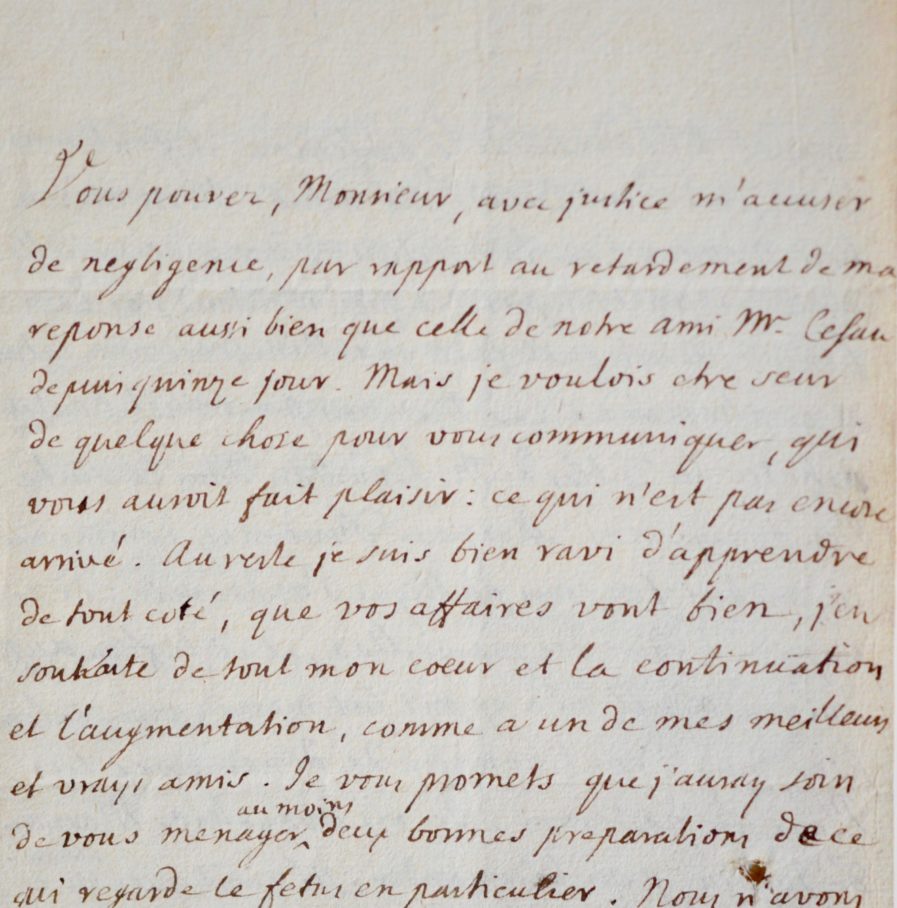 Vous pouvez, Monsieur, avec justice m'accuser
de negligence, par rapport au retardement de ma
reponse aussi bien que celle de notre ami Mr.
depui quinze jour. Mais je voulois etre seur
de quelque chose pour vous communiquer, qui
vous auroit fait plaisir: ce qui n'est pas encore
arrivé. Au reste je suis bien ravi d'apprendre
de tout coté, que vos affaires vont bien, j'en
souhaite de tout mon coeur et la continuation
et l'augmentation, comme a un de mes meilleurs
et vrays amis. Je vous promets que j'auray soin
de vous menager au moins deux bonnes preparations de ce
qui regarde le fetus en particulier. Nous n'avons